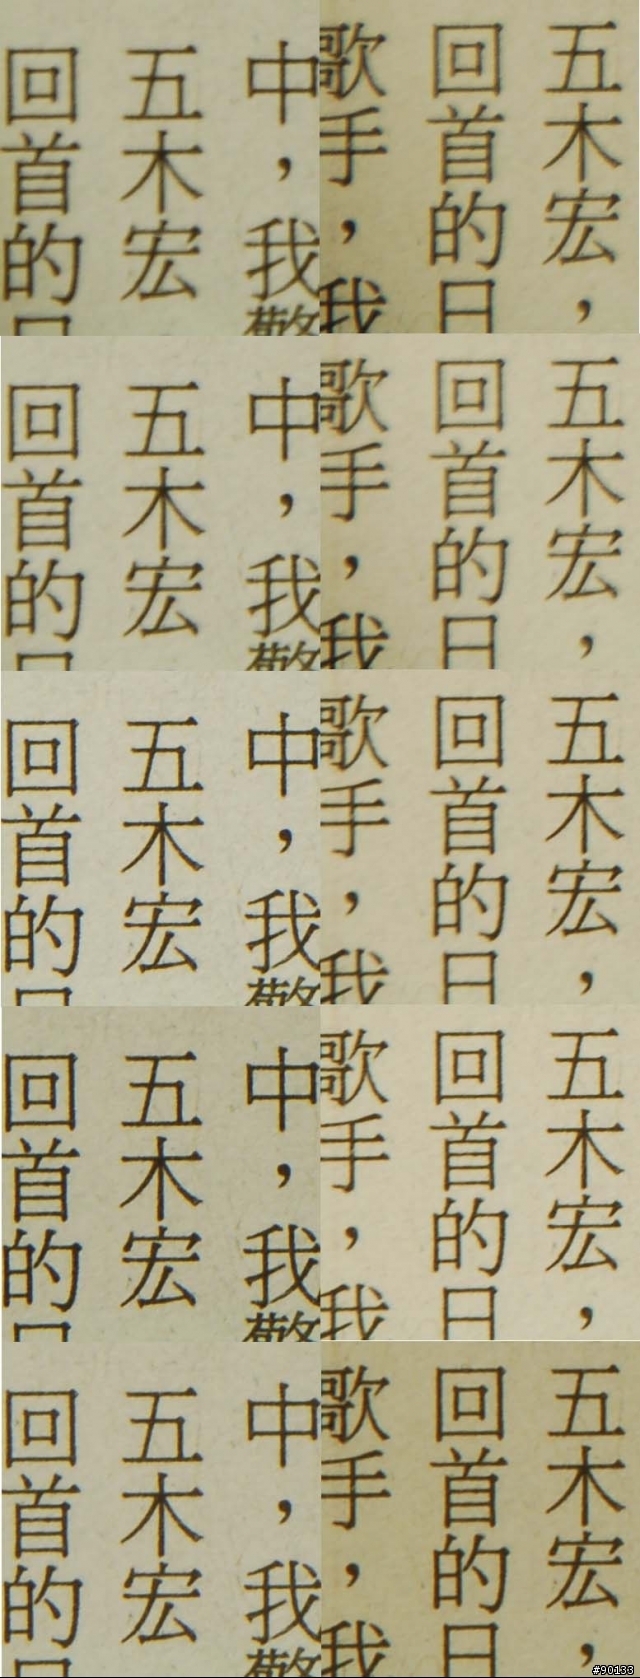 中，我
五木宏
回首的
五木宏，
回首的日
歌手，我
中，我
五木宏
回首的
五木宏，
回首的日
歌手，我
中，我
五木宏
回首的
五木宏，
回首的日
歌手，我
中，我
五木宏
回首的
五木宏，
回首的日
歌手，我
中，我
五木宏
回首的
五木宏，
回首的日
歌手，我
#90133